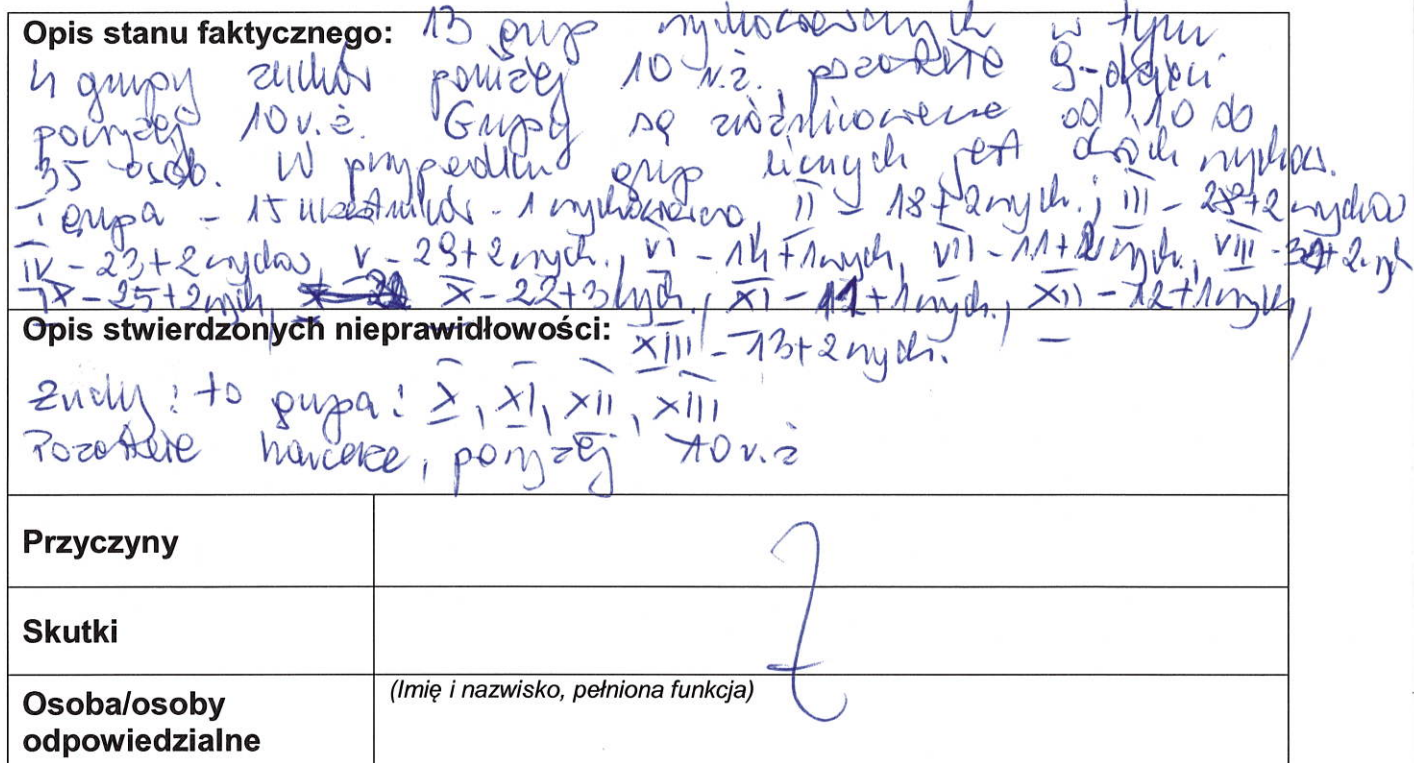 Opis stanu faktycznego: 13 grup wychowawczych w tym
4 grupy zuchów poniżej 10 r.ż. pozostałe 9-dzieci
powyżej 10 r.ż. Grupy są zróżnicowane od 10 do
35 osób. W przypadku grup licznych jest dwóch wychow.
I grupa - 15 uczestników - 1 wychowawca, II - 18+2 wych.; III - 28+2 wychow
IV - 23+2 wychow, V - 29+2 wych., VI - 14+1 wych, VII - 11+2 wych., VIII - +2 wych
IX - 25+2 wych, X - 22+3 wych., XI - 12+1 wych., XII - 12+1 wych,
Opis stwierdzonych nieprawidłowości: XIII - 13+2 wych. -
Zuchy: to grupa: X, XI, XII, XIII
Pozostałe harcerze, powyżej 10 r.ż
Przyczyny
Skutki
Osoba/osoby (Imię i nazwisko, pełniona funkcja)
odpowiedzialne